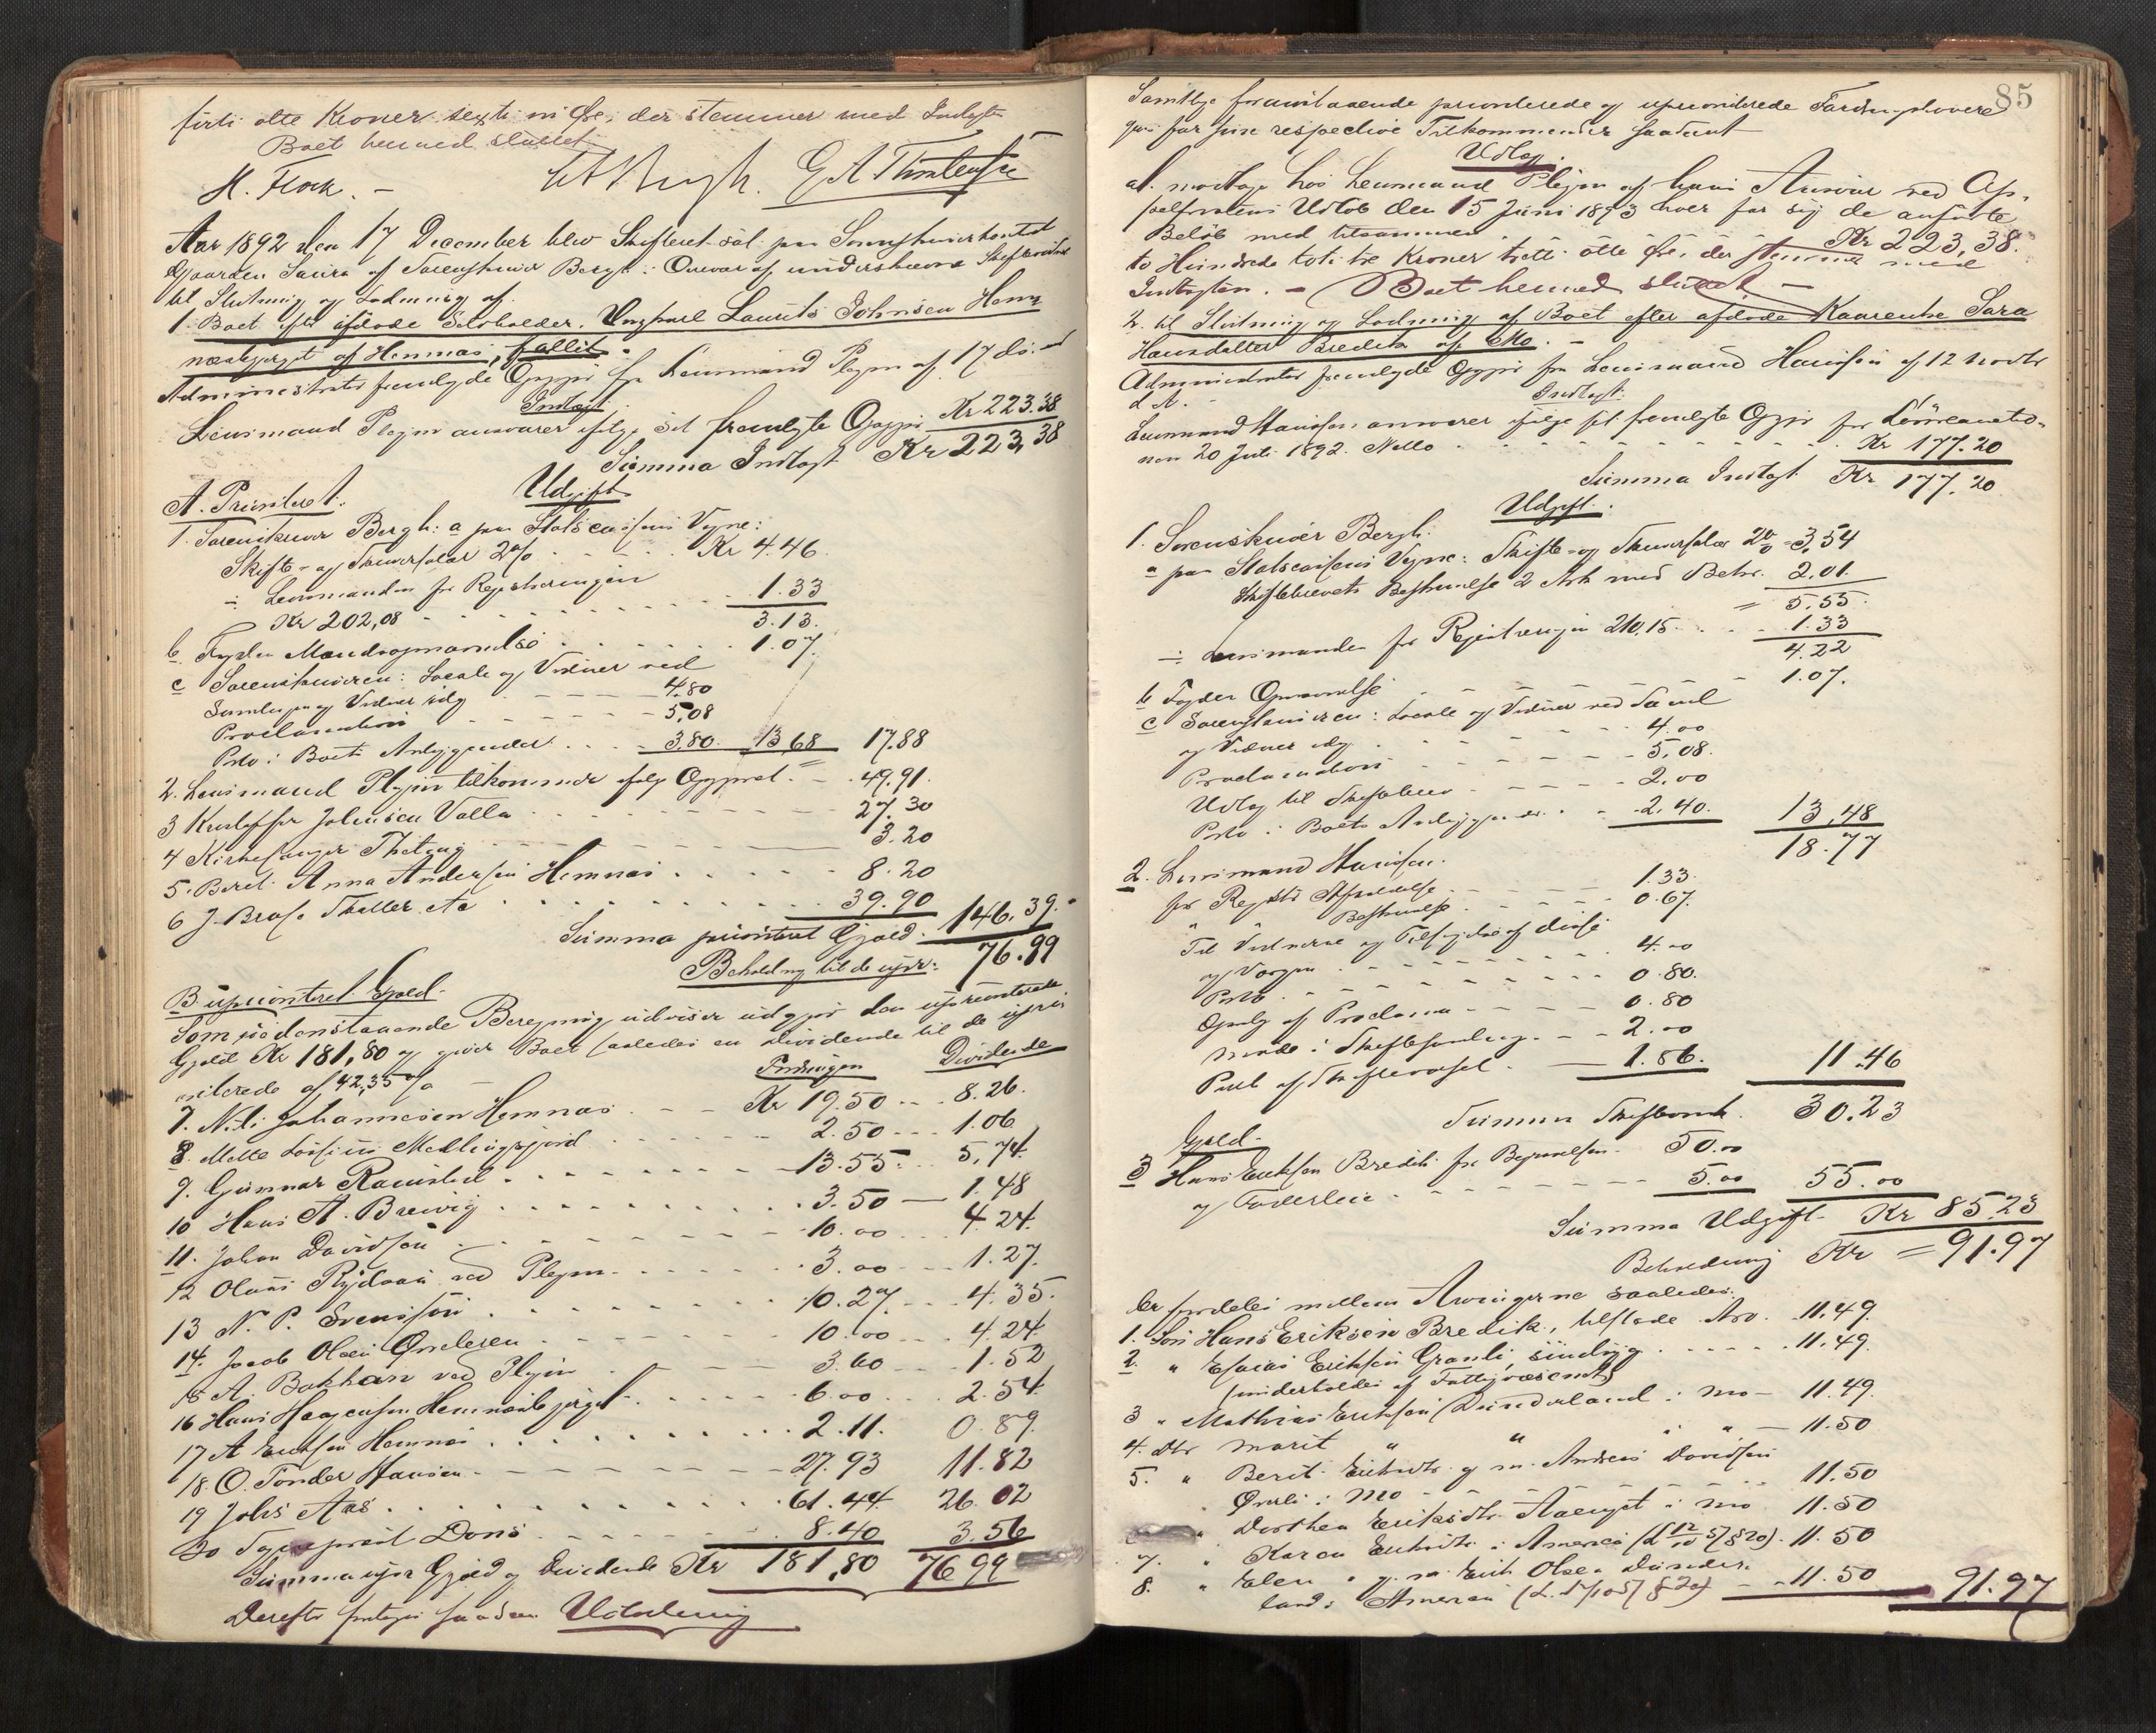 firti otte Kroner sexti ni Øre, der stemmer med Indtægten
Boet hermed sluttet
H. Flock. –
Aar 1892 den 17 December blev Skifteret sat paa Sorenskriverkontoret
Gaarden Saura af Sorenskriver Bergh i Overvær af underskrevne Skiftevidner
til Slutning og Lodning af
1. Boet efter afdøde Selveholder, Ungkarl Laurits Johnsen Hem-
næsbjerget af Hemnæs, fallit.
Administrator fremlagde Opgjør fra Lensmand Plejm af 17 ds.
Indtægt
Lensmand Plejm ansvarer ifølge det fremlagte Opgjør Kr 223.38
Summa Indtægt Kr 223,38
Udgift
A. Prioriteret:
1. Sorenskriver Bergh: a paa Statscassens Vegne:
Skifte- og Skriversalær 2% Kr 4.46
÷ Lensmanden for Registreringen
Kr 202,08 1.33
3.13
b. Fogden 1.07.
c Sorenskriveren: Locale og Vidner ved
Samlingen og Vidner idag 4.80
Proclamation 5,08
Porto i Boets Anliggender 3.80 13,68 17.88
2. Lensmand Plejm tilkommer ifølge Opgjøret 49.91.
3 Kristoffer Johnsen Valla 27.30
4 Kirkesanger Theting 3.20
5. Berel. Anna Andersen Hemnæs 8.20
6 J. Brose Skatter etc 39.90 146.39.
Summa prioriteret Gjæld
Beholdning til de upr: 76.99
B. uprioriteret Gjæld.
Som nedenstaaende Beregning udviser udgjør den uprioriterede
Gjæld Kr 181,80 og giver Boet saaledes en Dividende til de uprio-
riterede af 42,35%
Fordringen Dividende
7. N. Johannesen Hemnæs Kr 19.50 8.26.
8. Mette 2.50 1.06
9. Gunnar 13.55 5,74
10 Hans A. Breivig 3.50 1.48
11. Johan Davidsen 10.00 4.24.
12 Olaus ved Plejm 3.00 1.27.
13 N. P. Svensson 10.27 4.35.
14. Jacob Olsen 10.00 4.24
15 A. Bakhan ved Plejm 3.60 1.52
16 Hans Haagensen Hemnæsbjerget 6.00 2.54
17 A Eriksen Hemnæs 2.11. 0.89.
18. O. Tonder Hansen 27.93 11.82
19 Johs Aas 61.44 26.02
20 Sogneprest Dons 8.40 3.56
Summa upr Gjæld og Dividende Kr 181,80 76 99
Derefter foretages saadan Udlodning
85
Samtlige foranstaaende prioriterede og uprioriterede Fordringshavere
gives for sine respective Tilkommender saadant
Udlæg.
at modtage hos Lensmand Plejm af hans Ansvar ved Ap-
pelfristens Udløb den 15 Juni 1893 hver for sig de anførte
Beløb med tilsammen Kr 223,38.
to Hundrede toti tre Kroner tretti otte Øre, der stemmer med
Indtægten. – Boet hermed sluttet –
2. til Slutning og Lodning af Boet efter afdøde Kaarenke Sara
Hansdatter Bredik af Mo. –
Administrator fremlagde Opgjør fra Lensmand Hansen af 12 November
d. A. –
Indtægt:
Lensmand Hansen ansvarer ifølge sit fremlagte Opgjør for Løsøreauctio-
nen 20 Juli 1892. Netto Kr 177.20
Summa Indtægt Kr 177,20
Udgift.
1. Sorenskriver Bergh:
a paa Statscassens Vegne: Skifte- og Skriversalær 2% = 3,54
Skiftebrevets Beskrivelse 2 Ark med Bekr. 2.01
= 5.55.
÷ Lensmanden for Registreringen 210,15 1.33
4.22
b Fogden 1.07.
c Sorenskriveren: Locale og Vidner ved Saml
og Vidner idag 4.00
Proclamation 5,08.
Udlæg til Skiftebrev 2.00
Porto i Boets Anliggender 2.40. 13,48
18.77
2. Lensmand Hansen:
for Registr Afholdelse 1.33.
" Beskrivelse 0.67.
Til Vidnerne og Tilsigelse af disse
og Værgen 4.00
Porto 0.80.
Opslag af Proclama 0.80
Møde i Skiftesamling 2.00
Part af 1.86. 11.46
Summa Skifteomk. 30.23
Gjæld.
3 Hans Eriksen Bredik for Begravelsen 50.00
og 5.00 55.00
Summa Udgift Kr 85.23
Beholdning Kr = 91.97
der fordeles mellem Arvingerne saaledes:
1. Søn Hans Eriksen Bredik, tilstede Arv. 11.49.
2. " Esaias Eriksen Granli, sindssyg 11.49.
(underholdes af Fattigvæsenet)
3 " Mathias Eriksen Dunderland i Mo – 11.49.
4. Dtr Marit " " i " – 11.50
5. " Berit Eriksdtr g. m. Andreas Davidsen
i Mo 11.50
" Dorthea Eriksdtr i Mo 11.50
7. " Karen Eriksdtr i America 11.50
8. " Elen " g. m. Erik Olsen Dunder-
land i America 11.50 91.97